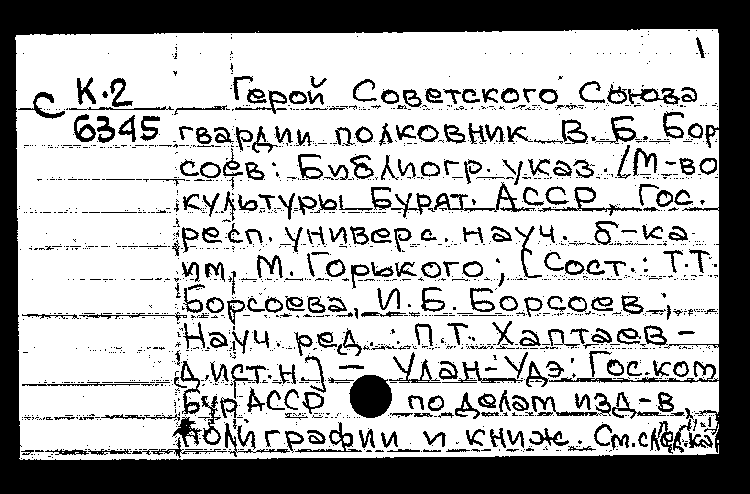 1
С К.2 Герой Советского Союза
6345 гвардии полковник В. Б. Бор
соев: Библиогр. указ. /М-во
культуры Бурят. АССР, Гос.
респ. универс. науч. б-ка
им. М. Горького; [Сост.: Т.Т.
Борсоева, И.Б. Борсоев;
Науч. ред.: П.Т. Хаптаев -
д.ист.н.] — Улан-Удэ: Гос.ком
Бур АССР по делам изд-в,
полиграфии и книж. См.след.ка